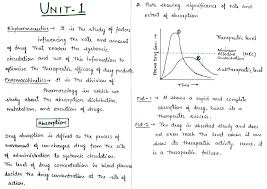 UNIT-1
Biopharmaceutics → It is the study of factors
influencing the rate and amount
of drug that reaches the systemic
circulation and use of this information to
optimise the therapeutic efficacy of drug products.
Pharmacokinetics → It is the division of
pharmacology in which we
study about the absorption distribution,
metabolism, and excretion of drugs.
Absorption
Drug absorption is defined as the process of
movement of unchanged drug from the site
of administration to systemic circulation.
The level of drug concentration in blood plasma
decides the drug concentration at the site of
action.
Plots showing significance of rate and
extent of absorption.
Plasma Drug Conc.
Therapeutic level
Minimum
effective
concentration (MEC)
Subtherapeutic level
Time
Plot-1 → It shows a rapid and complete
absorption of drug, hence its a
therapeutic success.
Plot-2 → The drug is absorbed slowly and does not
even reach the level where it can
show its therapeutic activity, hence, it
is a therapeutic failure.